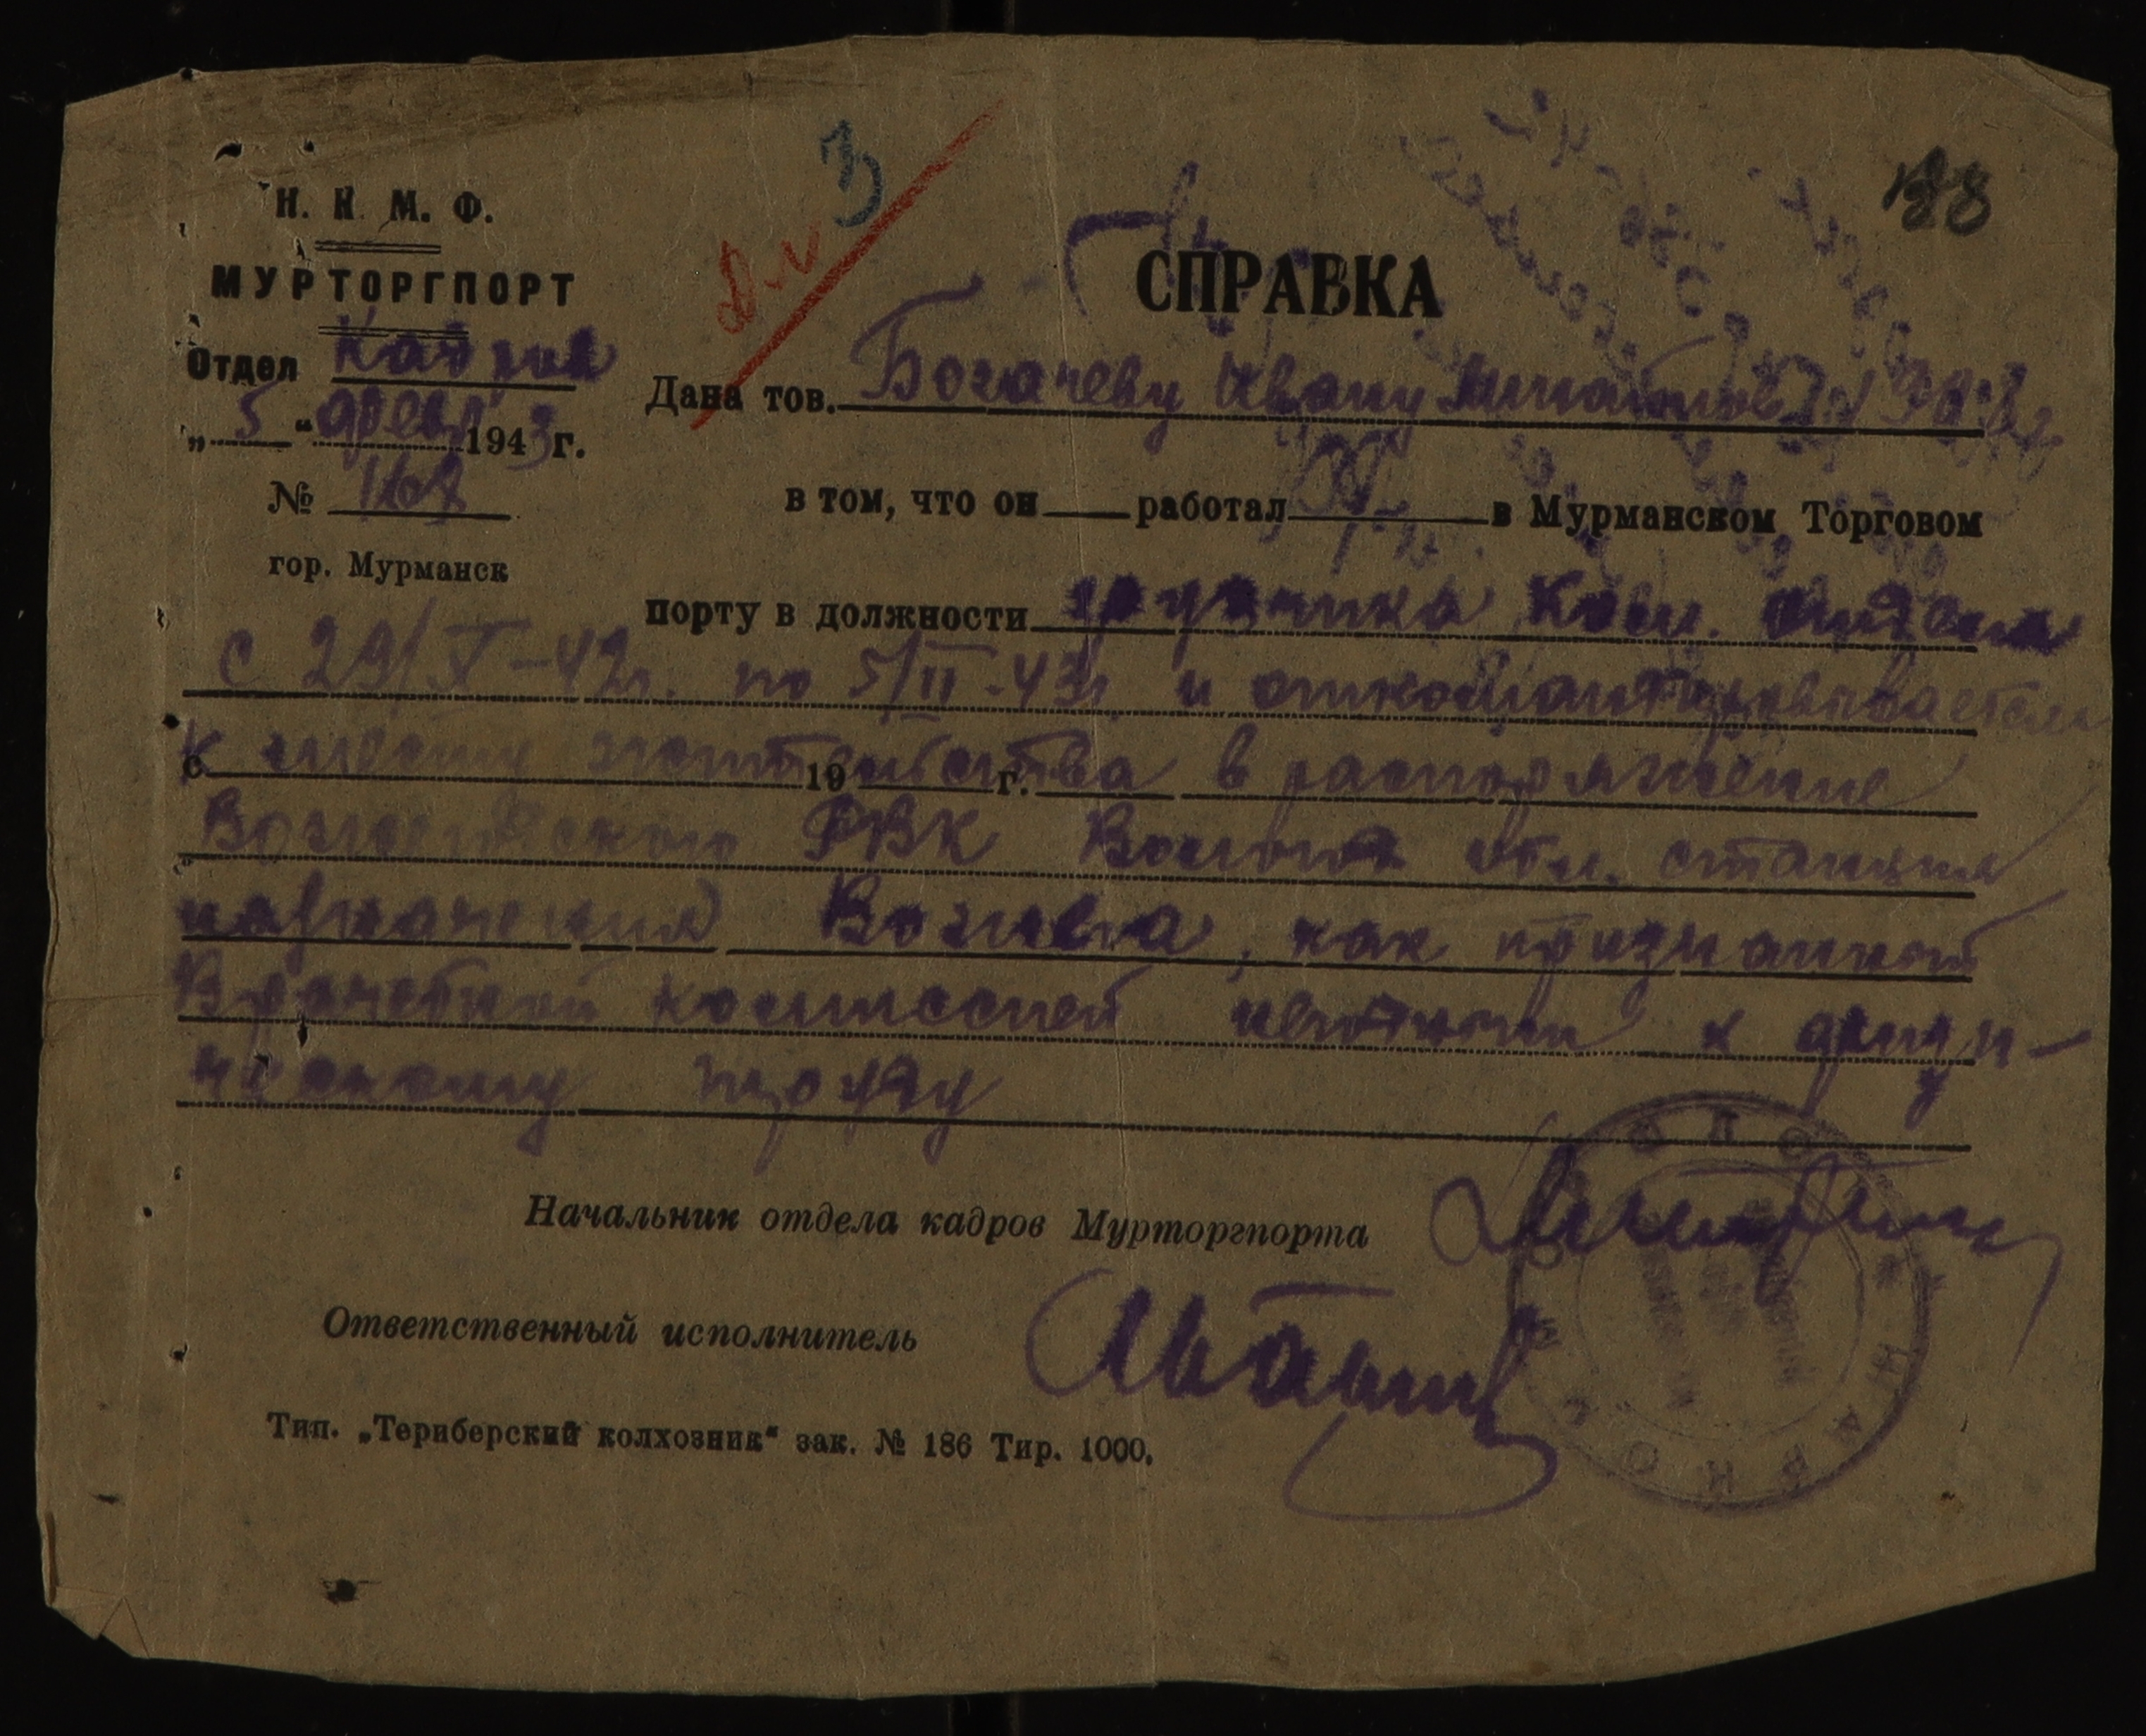 128
3
Н. К. М. Ф.
МУРТОРГПОРТ
Отдел Кадров
„5“ февр 1943 г.
№ 1167
гор. Мурманск
СПРАВКА
Дана тов. Богачеву Ивану
в том, что он работал в Мурманском Торговом
порту в должности грузчика Ком. отдела
с 29/X-42г. по 5/II-43г и откомандировывается
к месту жительства в распоряжение
с 19 г.
Вожегодского РВК Волог. обл. станция
назначения Вожега, как признанный
Врачебной комиссией негодным к физи-
ческому труду
Начальник отдела кадров Мурторгпорта
Ответственный исполнитель
Тип. „Териберский колхозник“ зак. № 186 Тир. 1000.